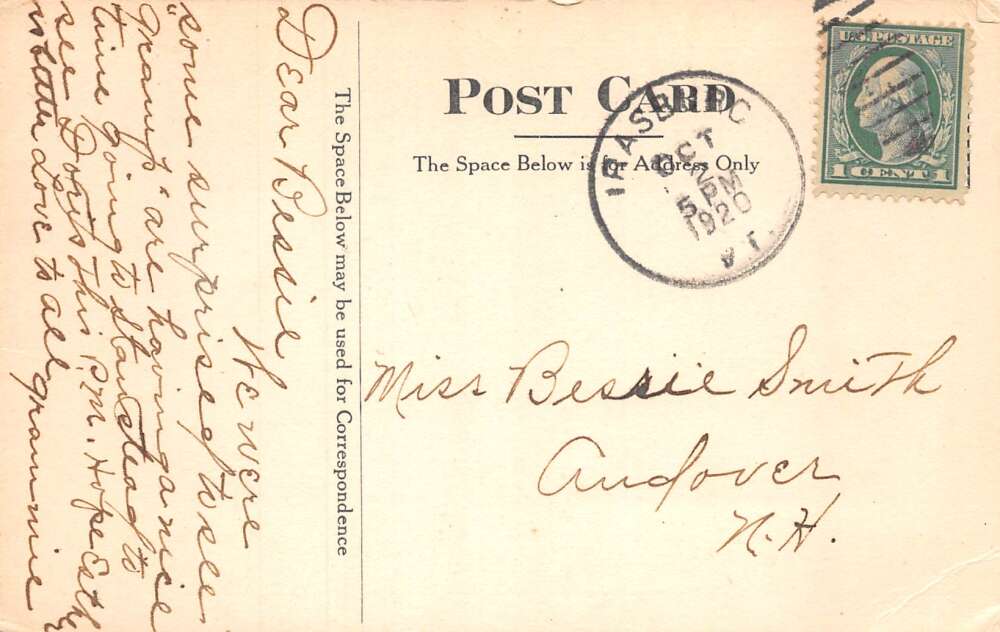 POST CARD
The Space Below is for Address Only
U.S. POSTAGE
1 CENT 1
IRASBURG
OCT
5 PM
1920
VT.
Miss Bessie Smith
Andover
N.H.
The Space Below may be used for Correspondence
Dear Bessie
We were
some surprised to see
"Gramp" are having a nice
time going to Stanstead to
see Dorys this P.M. Hope
is better Love to all Grammie